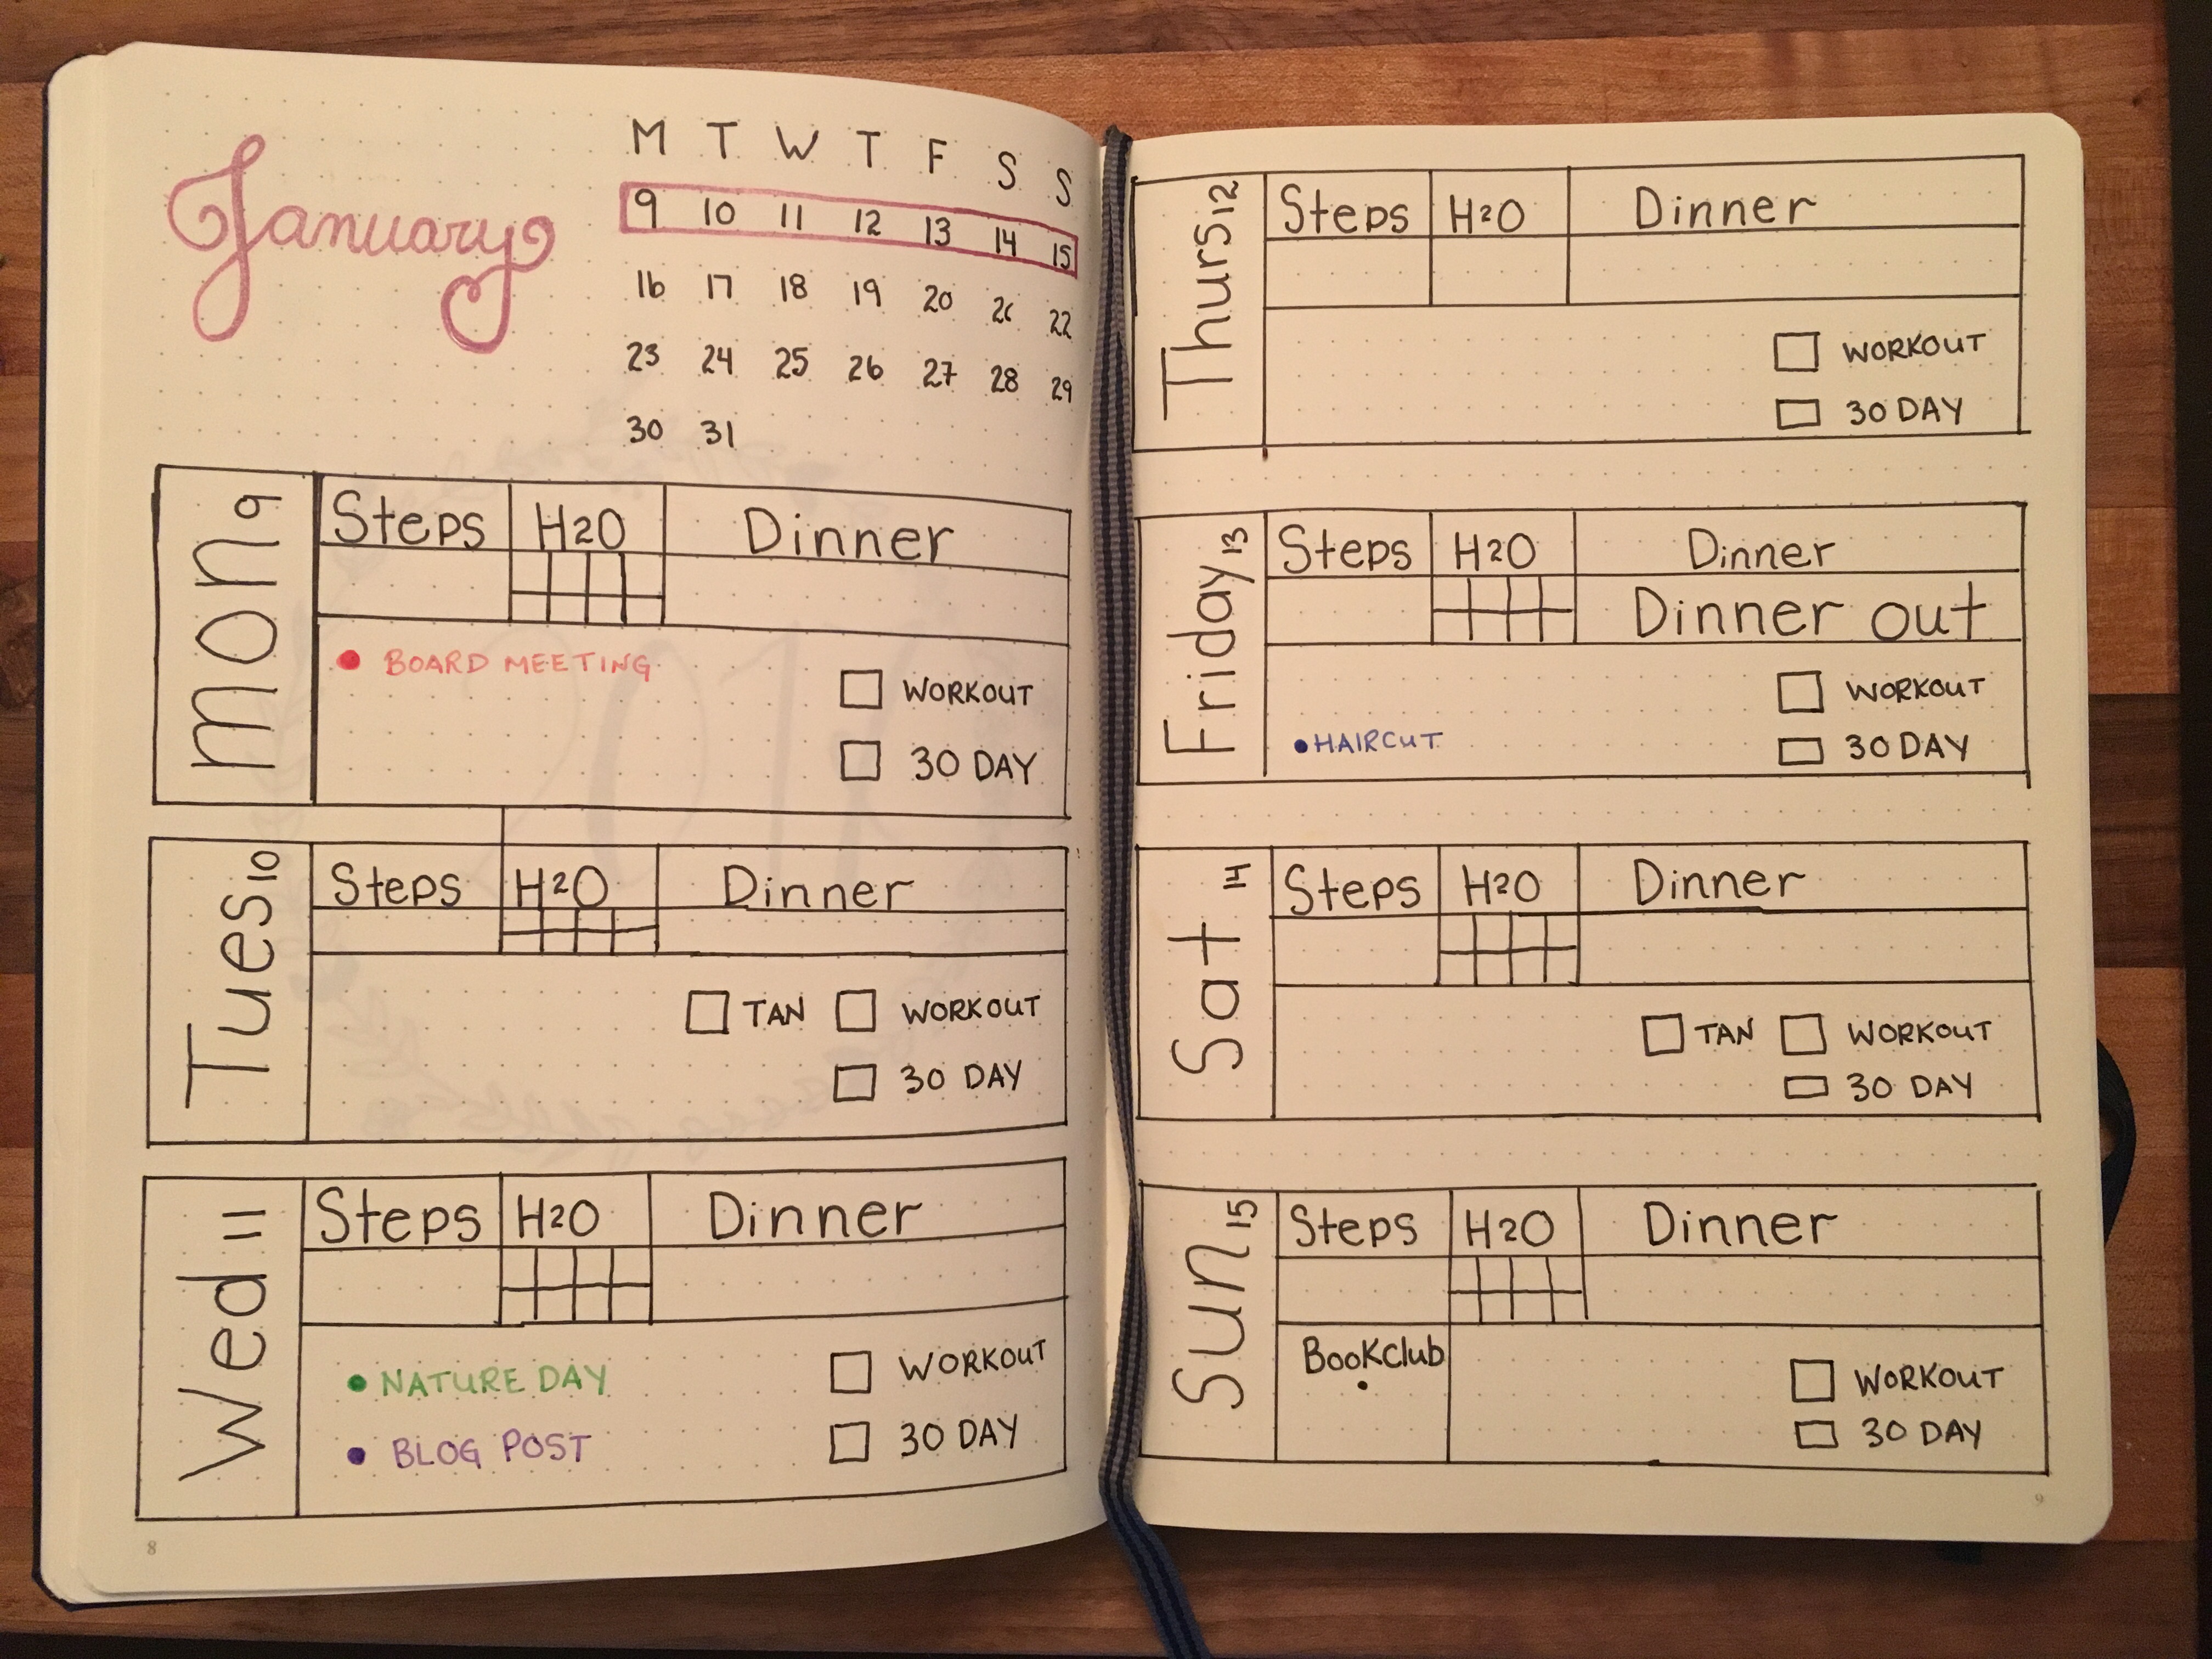 January
M T W T F S S
9 10 11 12 13 14 15
16 17 18 19 20 21 22
23 24 25 26 27 28 29
30 31
Mon 9
Steps H2O Dinner
• BOARD MEETING
WORKOUT
30 DAY
Tues 10
Steps H2O Dinner
TAN WORKOUT
30 DAY
Wed 11
Steps H2O Dinner
• NATURE DAY
WORKOUT
• BLOG POST
30 DAY
8
Thurs 12
Steps H2O Dinner
WORKOUT
30 DAY
Friday 13
Steps H2O Dinner
Dinner out
WORKOUT
• HAIRCUT
30 DAY
Sat 14
Steps H2O Dinner
TAN WORKOUT
30 DAY
Sun 15
Steps H2O Dinner
Bookclub
WORKOUT
30 DAY
9